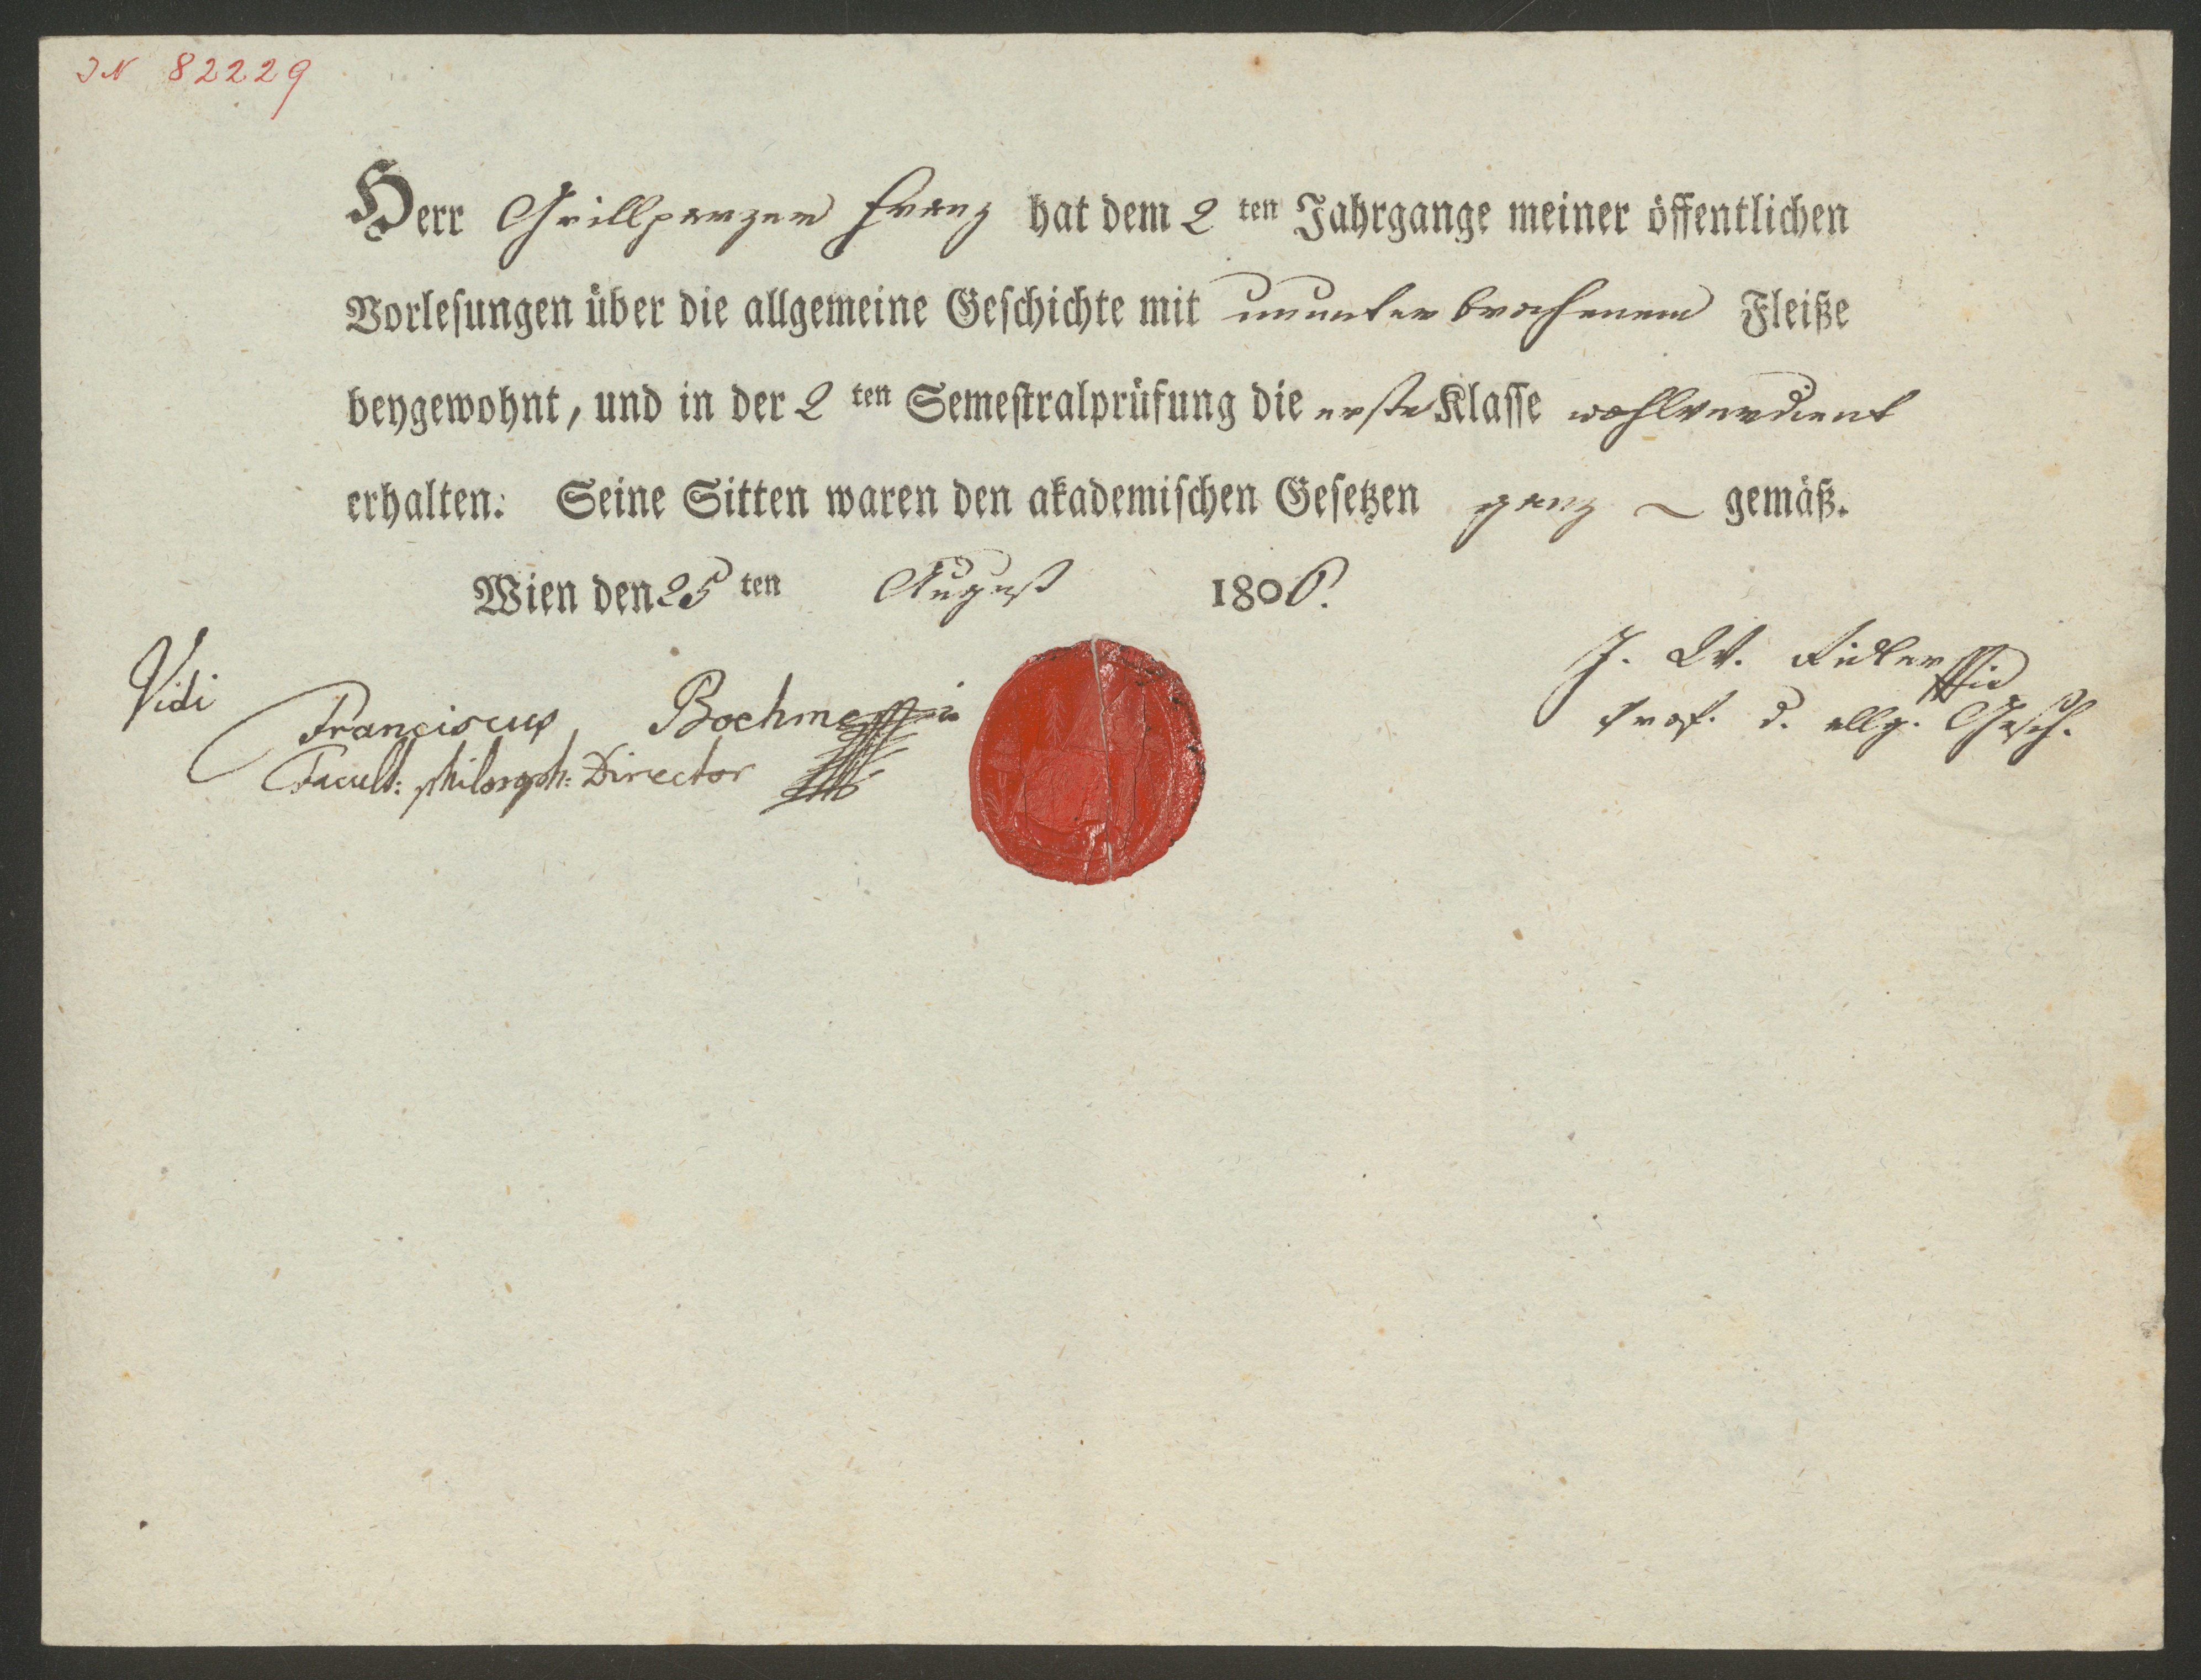 IN 82229
Herr Grillparzer Franz hat dem 2 ten Jahrgange meiner öffentlichen
Vorlesungen über die allgemeine Geschichte mit ununterbrochenem Fleiße
beygewohnt, und in der 2 ten Semestralprüfung die erste Klasse wohlverdient
erhalten. Seine Sitten waren den akademischen Gesetzen ganz ~ gemäß.
Wien den 25 ten August 1806.
Vidi
Franciscus Boehme
Facult: philosoph: Director
J. W. Ridler
Prof. d. allg. Gesch.